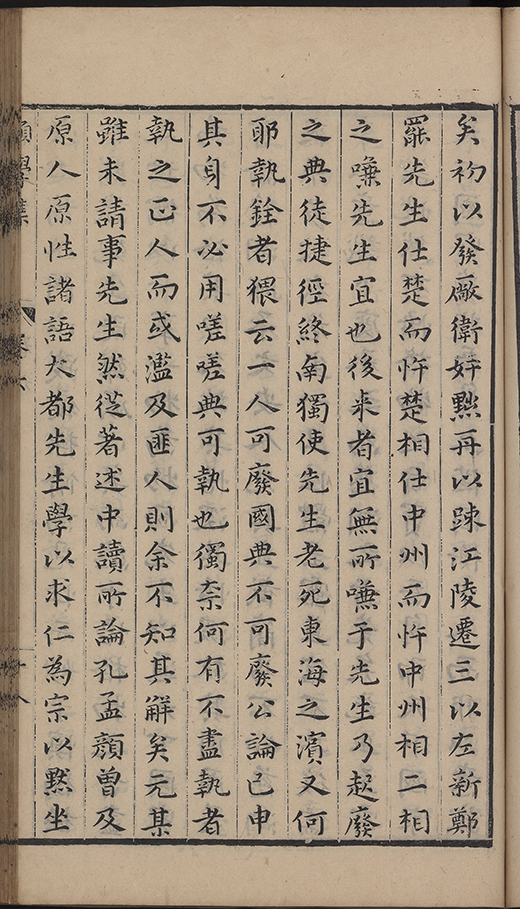 矣初以發廠衛奸黜再以踈江陵遷三以左新鄭
罷先生仕楚而忤楚相仕中州而忤中州相二相
之嗛先生宜也後来者宜無所嗛于先生乃起廢
之典徒捷徑終南獨使先生老死東海之濱又何
耶執銓者猥云一人可廢國典不可廢公論已申
其身不必用嗟嗟典可執也獨柰何有不盡執者
執之正人而或濫及匪人則余不知其解矣元某
雖未請事先生然従著述中讀所論孔孟顏曾及
原人原性諸語大都先生學以求仁為宗以黙坐
學
卷六
十八